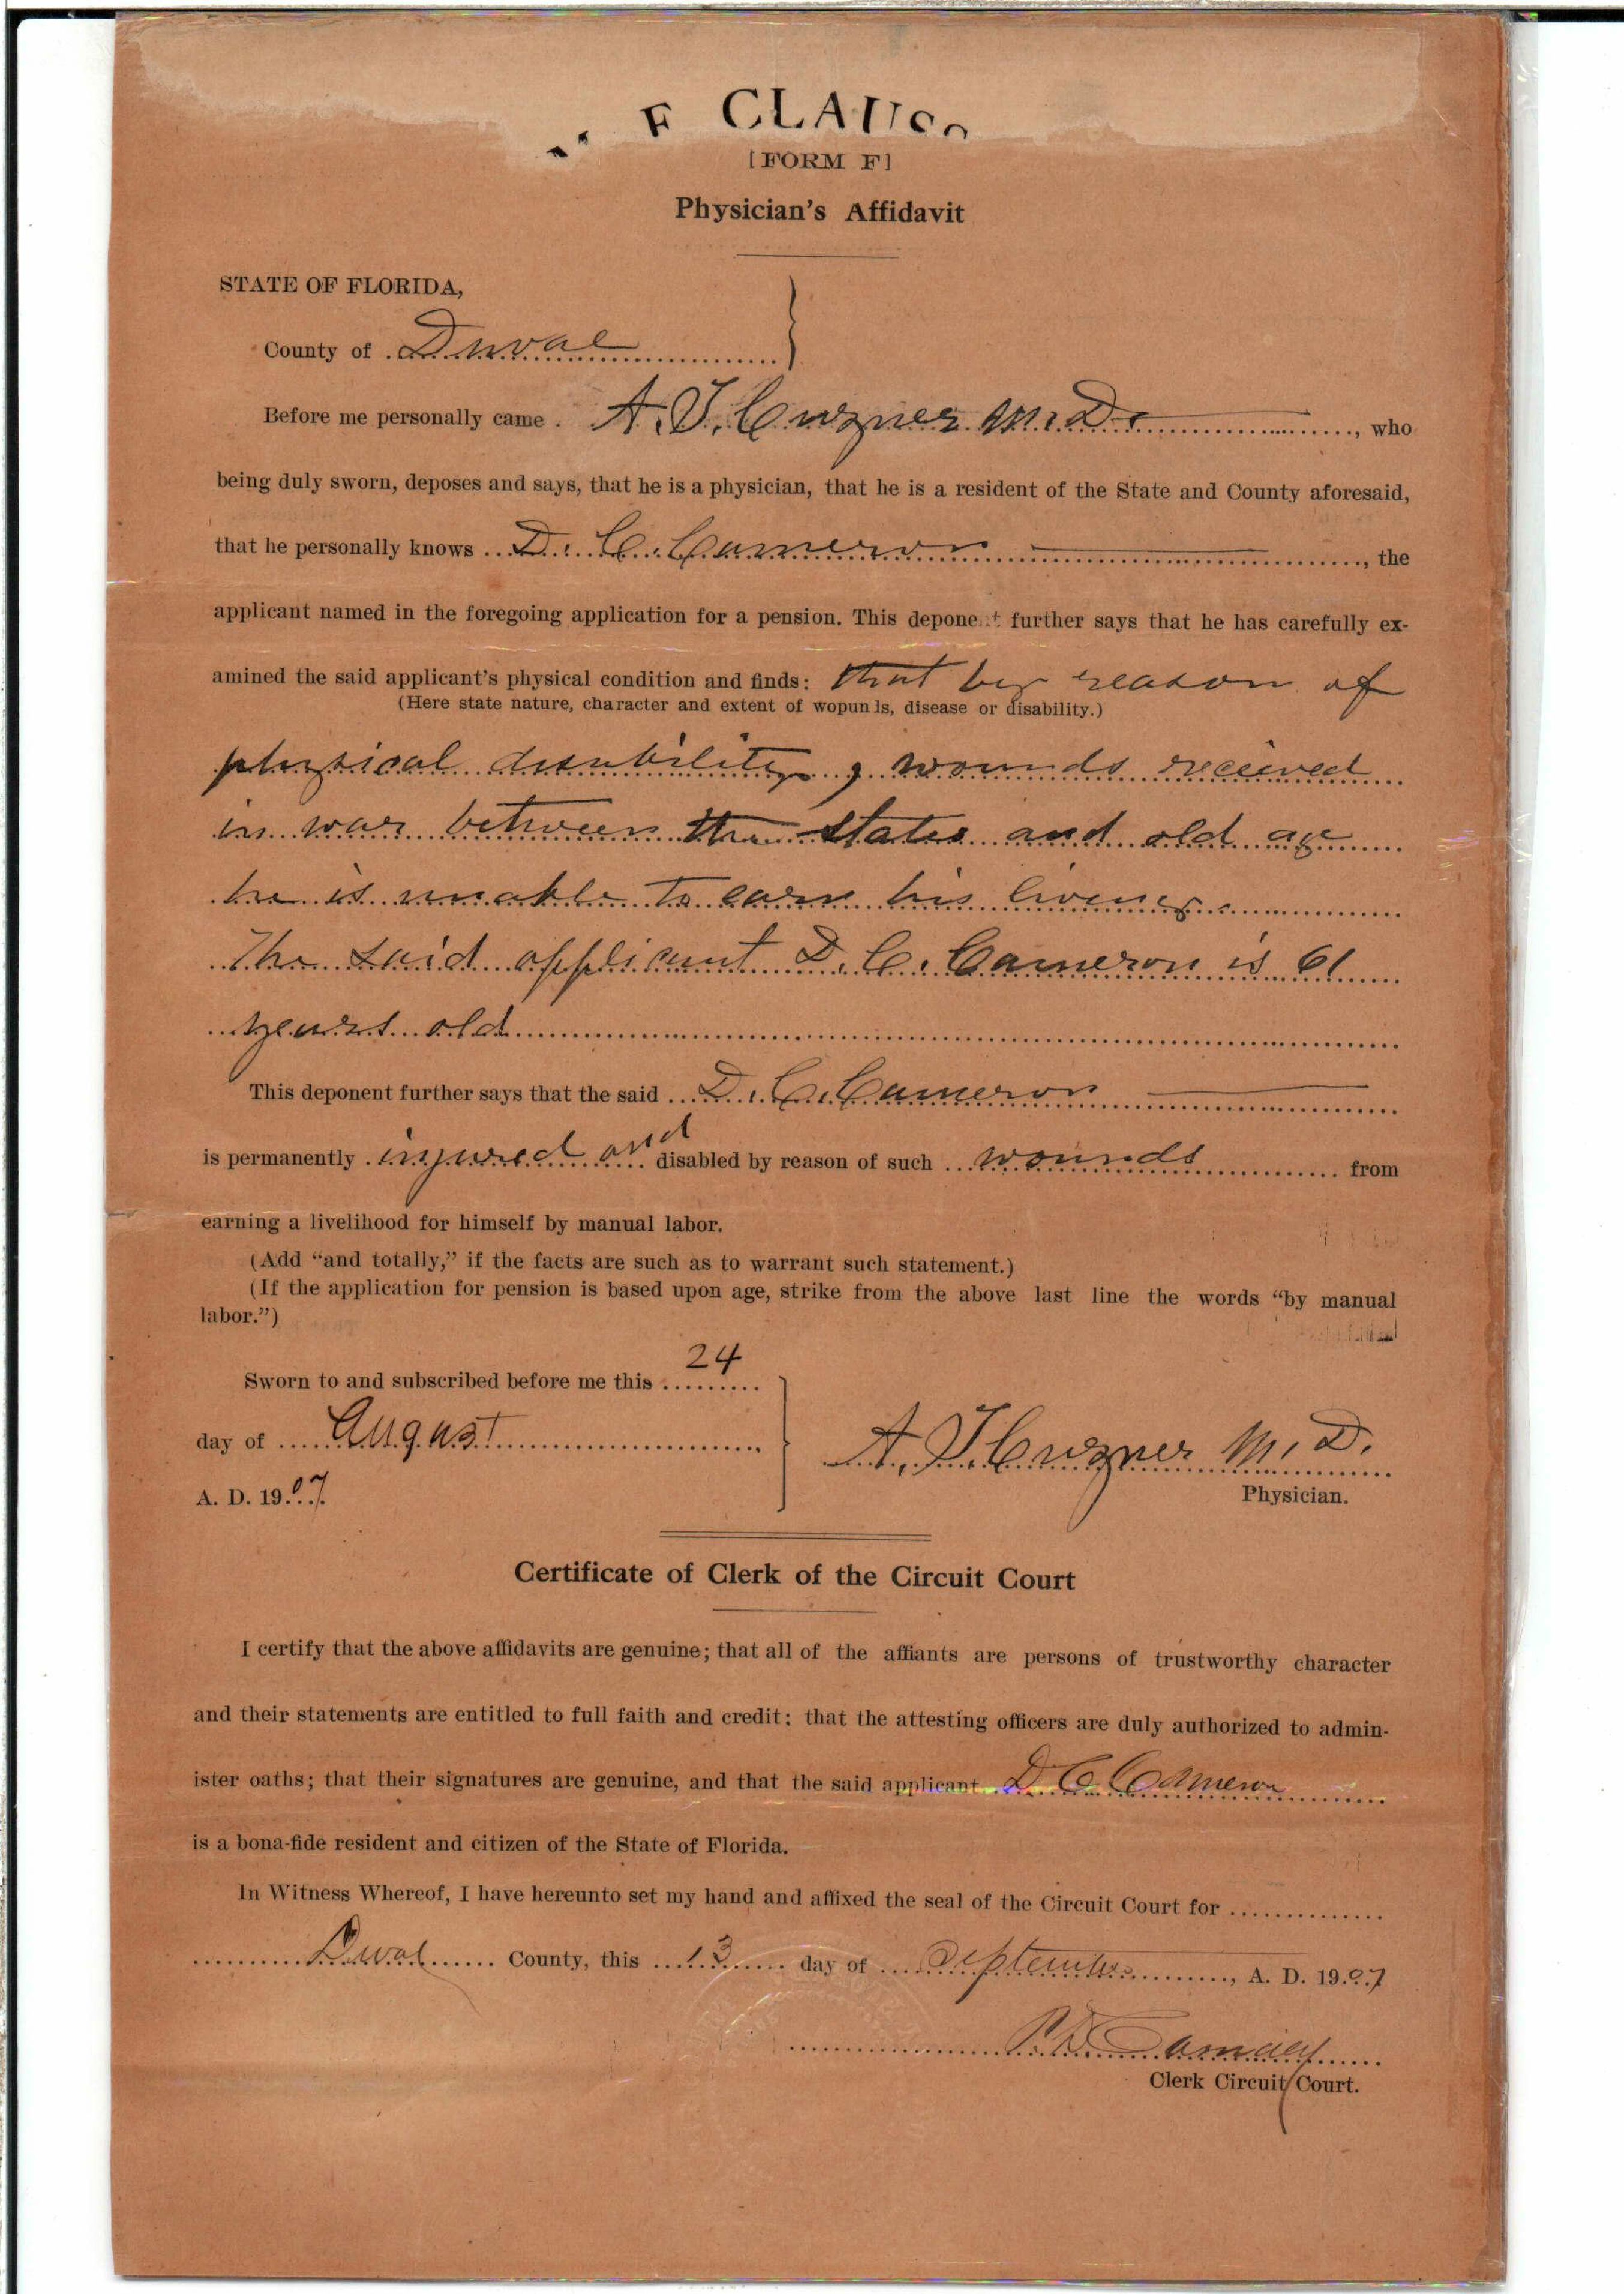 F CLAUS
[FORM F]
Physician's Affidavit
STATE OF FLORIDA,
County of Duval
Before me personally came A. J. Cuzner M.D. , who
being duly sworn, deposes and says, that he is a physician, that he is a resident of the State and County aforesaid,
that he personally knows D. C. Cameron , the
applicant named in the foregoing application for a pension. This deponent further says that he has carefully ex-
amined the said applicant's physical condition and finds: that by reason of
(Here state nature, character and extent of wopunds, disease or disability.)
physical disability, wounds received
in war between the States and old age
he is unable to earn his living.
The said applicant D. C. Cameron is 61
years old
This deponent further says that the said D. C. Cameron
is permanently injured and disabled by reason of such wounds from
earning a livelihood for himself by manual labor.
(Add "and totally," if the facts are such as to warrant such statement.)
(If the application for pension is based upon age, strike from the above last line the words "by manual
labor.")
Sworn to and subscribed before me this 24
day of August
A. D. 1907
A. J. Cuzner M. D.
Physician.
Certificate of Clerk of the Circuit Court
I certify that the above affidavits are genuine; that all of the affiants are persons of trustworthy character
and their statements are entitled to full faith and credit: that the attesting officers are duly authorized to admin-
ister oaths; that their signatures are genuine, and that the said applicant D C Cameron
is a bona-fide resident and citizen of the State of Florida.
In Witness Whereof, I have hereunto set my hand and affixed the seal of the Circuit Court for
Duval County, this 13 day of September , A. D. 1907
Clerk Circuit Court.